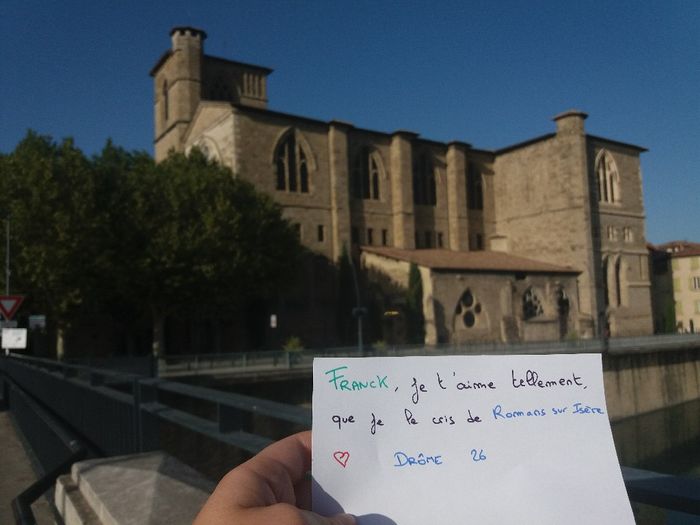 FRANCK, je t'aime tellement,
que je le cris de Romans sur Isère
DRÔME 26